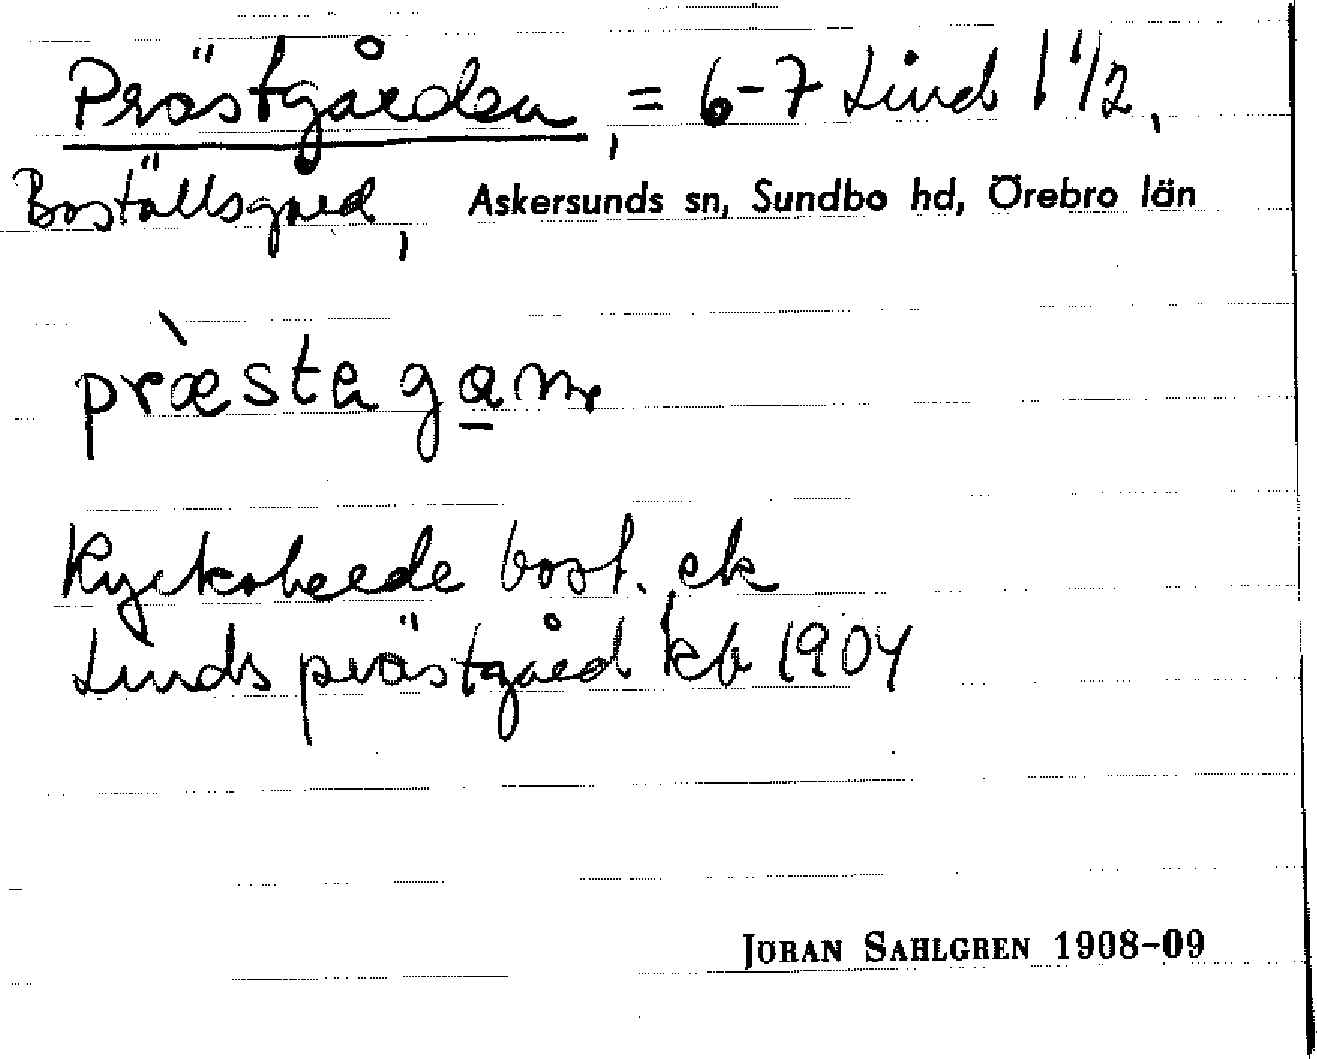 Prästgården, = 6-7 Lind 1 1/2,
Boställsgård, Askersunds sn, Sundbo hd, Örebro län
præsta ga̱ɳ
Kyrkoherde bost. ek
Linds prästgård kb 1904
JÖRAN SAHLGREN 1908-09